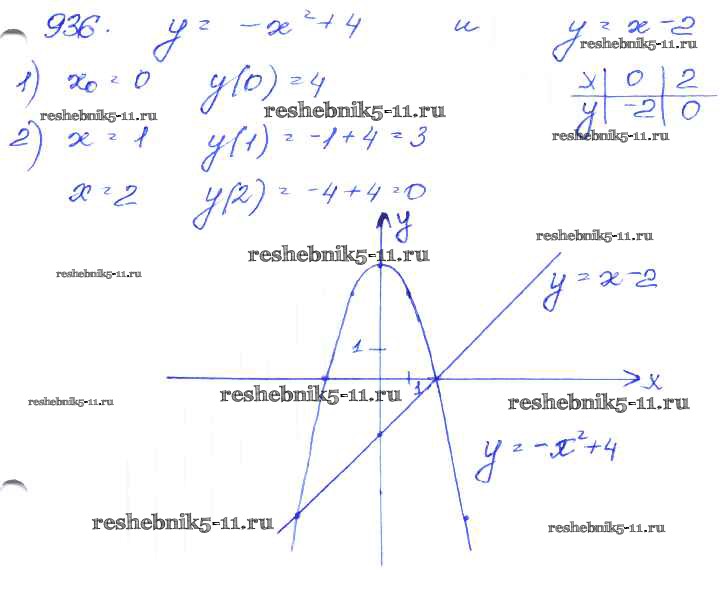 936. y = -x² + 4 и y = x - 2
reshebnik5-11.ru
1) x₀ = 0 y(0) = 4
x | 0 | 2
reshebnik5-11.ru
reshebnik5-11.ru
y | -2 | 0
2) x = 1 y(1) = -1 + 4 = 3
reshebnik5-11.ru
x = 2 y(2) = -4 + 4 = 0
y
reshebnik5-11.ru
reshebnik5-11.ru
reshebnik5-11.ru
y = x - 2
1
1
x
reshebnik5-11.ru
reshebnik5-11.ru
reshebnik5-11.ru
y = -x² + 4
reshebnik5-11.ru
reshebnik5-11.ru